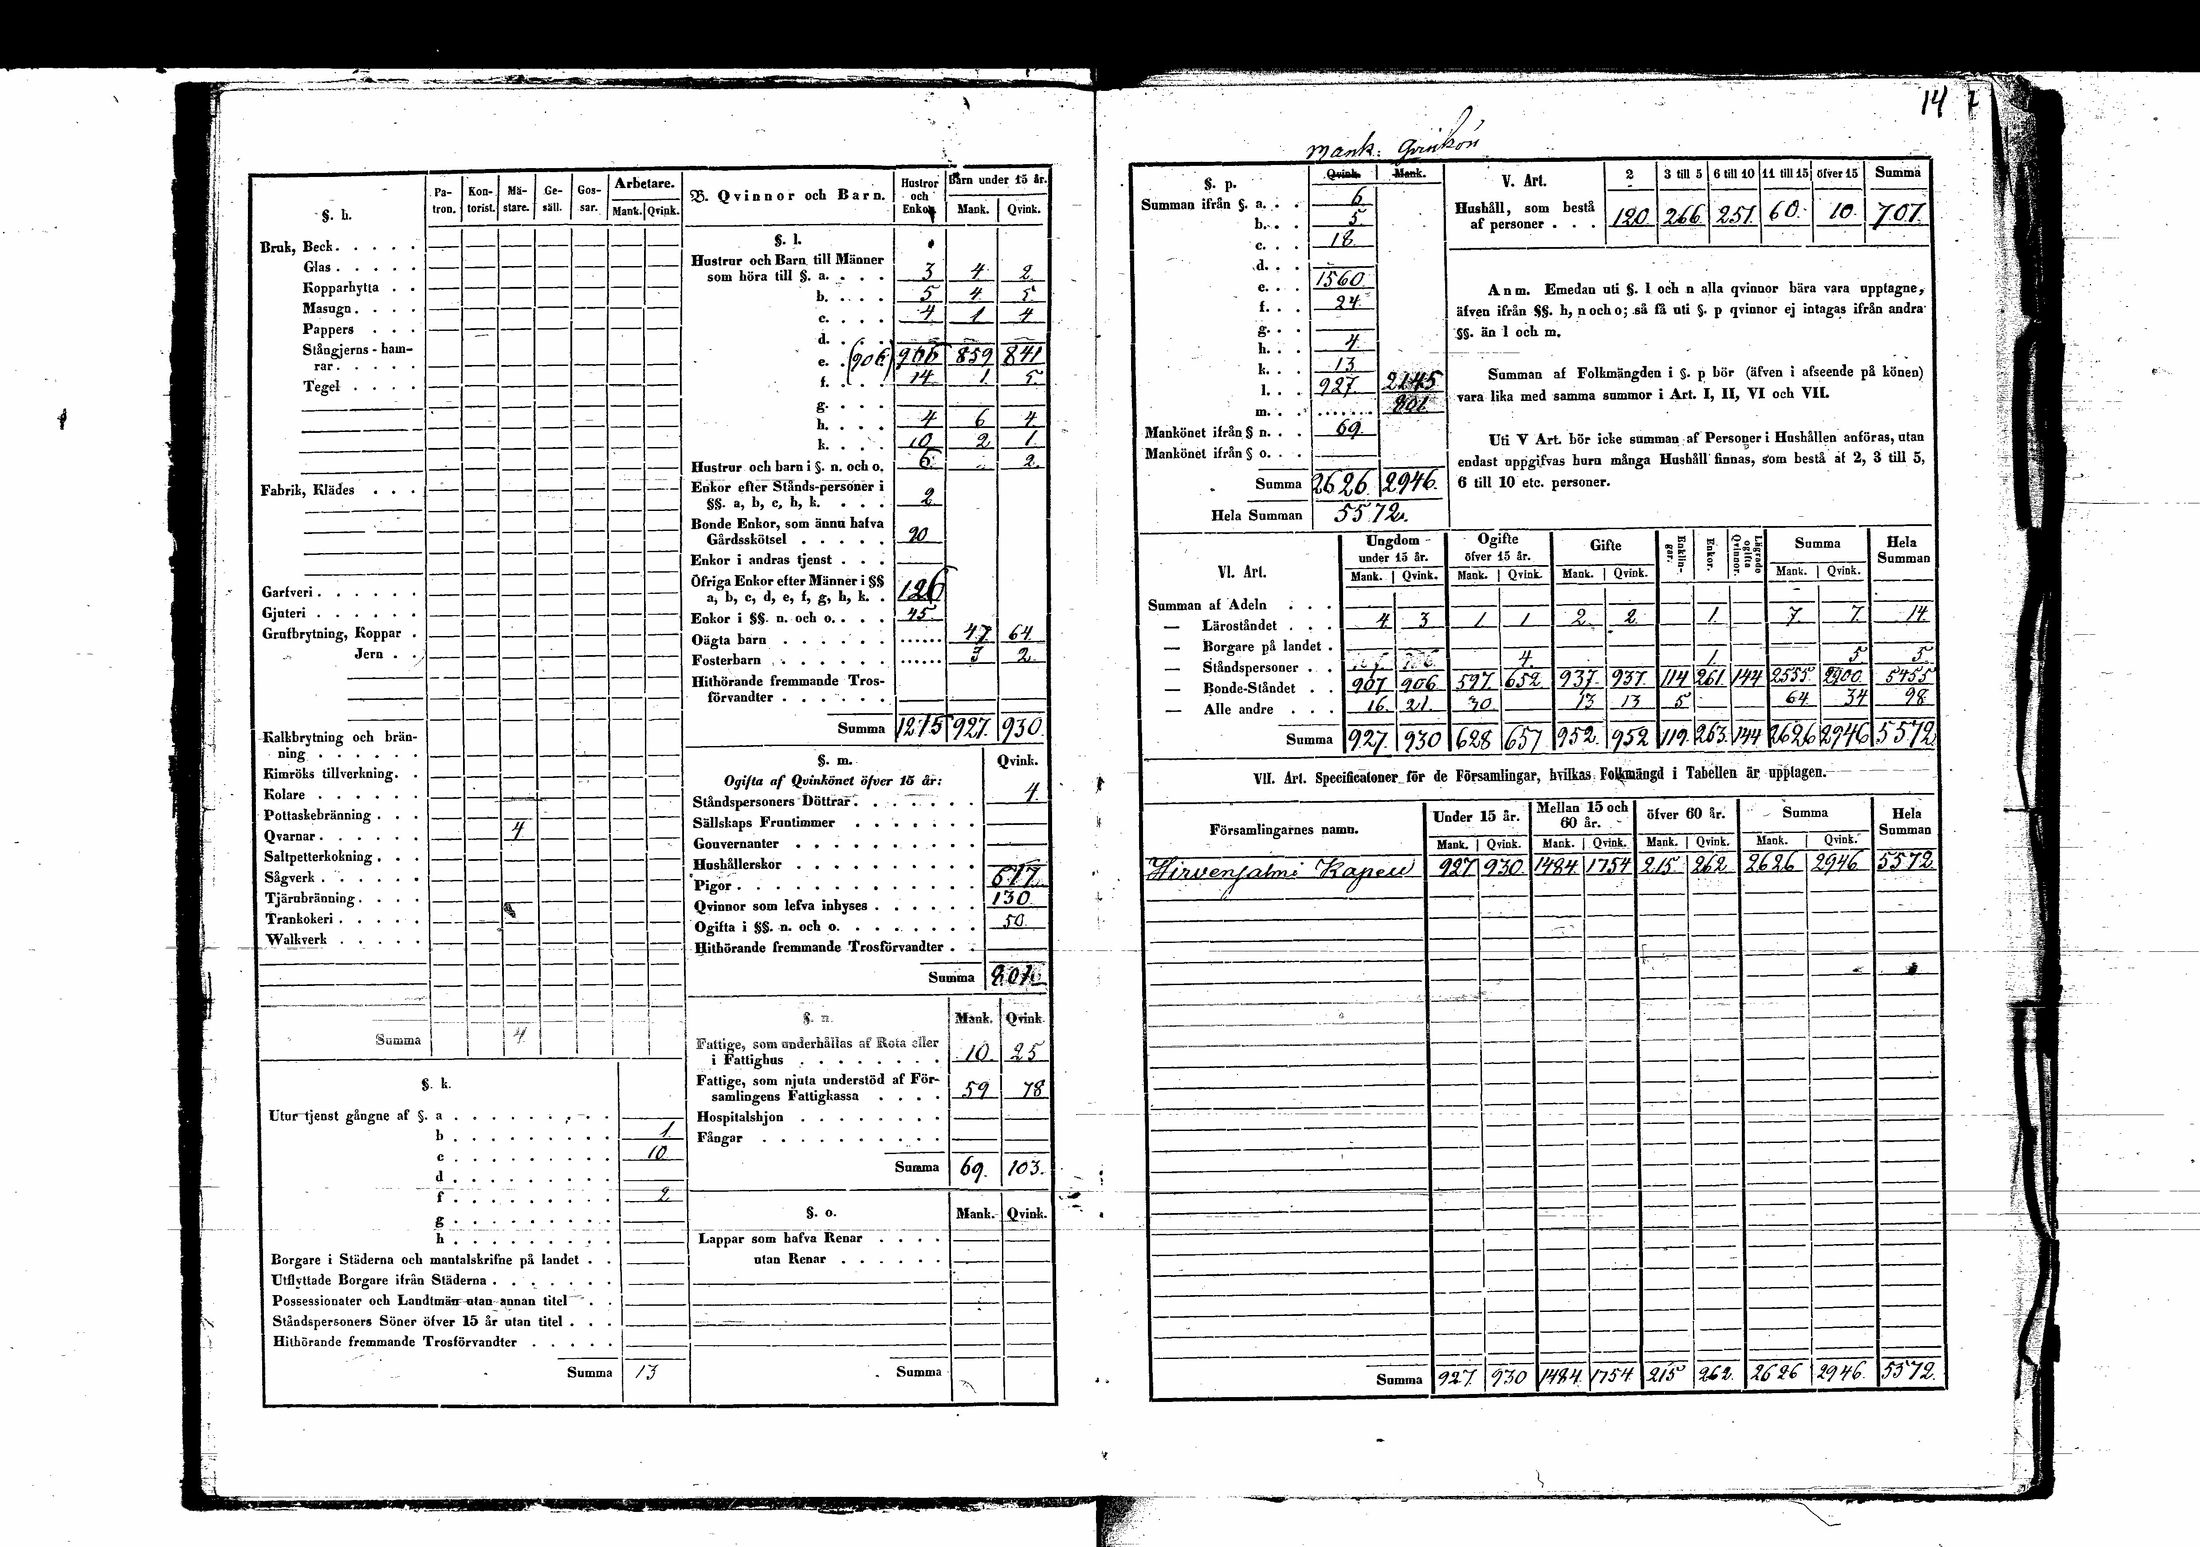 14
§. h.
Pa- tron. Kon- torist. Mä- stare. Ge- säll. Gos- sar. Arbetare. Mank. Qvink.
Bruk, Beck . . . . .
Glas . . . . .
Kopparhytta . .
Masugn . . . .
Pappers . . .
Stångjerns-ham-
rar . . . . .
Tegel . . . .
Fabrik, Klädes . . .
Garfveri . . . . . .
Gjuteri . . . . . .
Grufbrytning, Koppar .
Jern . .
Kalkbrytning och brän-
ning . . . . . .
Kimröks tillverkning . .
Kolare . . . . . .
Pottaskebränning . . .
Qvarnar . . . . . 4
Saltpetterkokning . . .
Sågverk . . . . .
Tjärubränning . . . .
Trankokeri . . . . .
Walkverk . . . . .
Summa 4
§. k.
Utur tjenst gångne af §. a . . . . . . . .
b . . . . . . . . . 1
c . . . . . . . . . 10
d . . . . . . . . .
f . . . . . . . . . 2
g . . . . . . . . .
h . . . . . . . . .
Borgare i Städerna och mantalskrifne på landet . .
Utflyttade Borgare ifrån Städerna . . . . . . .
Possessionater och Landtmän utan annan titel . .
Ståndspersoners Söner öfver 15 år utan titel . . .
Hithörande fremmande Trosförvandter . . . . .
Summa 13
B. Qvinnor och Barn. Hustror och Enkor Barn under 15 år. Mank. Qvink.
§. l.
Hustrur och Barn till Männer
som höra till §. a. . . . 3 4 2
b. . . . 5 4 5
c. . . . 4 1 4
d. . . .
e. . (906) 906 859 841
f. . . . 14 1 5
g. . . .
h. . . . 4 6 4
k. . . . 10 2 1
Hustrur och barn i §. n. och o. 6 2
Enkor efter Stånds-personer i
§§. a, b, c, h, k. . . . 2
Bonde Enkor, som ännu hafva
Gårdsskötsel . . . . . 20
Enkor i andras tjenst . . .
Öfriga Enkor efter Männer i §§
a, b, c, d, e, f, g, h, k. . 126
Enkor i §§. n. och o. . . . 45
Oägta barn . . . . . . 47 64
Fosterbarn . . . . . . 3 2
Hithörande fremmande Tros-
förvandter . . . . . .
Summa 1215 927 930
§. m. Qvink.
Ogifta af Qvinkönet öfver 15 år:
Ståndspersoners Döttrar . . . . . . . 4
Sällskaps Fruntimmer . . . . . . .
Gouvernanter . . . . . . . . . .
Hushållerskor . . . . . . . . .
Pigor . . . . . . . . . . . . 617
Qvinnor som lefva inhyses . . . . . . 130
Ogifta i §§. n. och o. . . . . . . . 50
Hithörande fremmande Trosförvandter . .
Summa 801
§. n. Mank. Qvink.
Fattige, som underhållas af Rota eller
i Fattighus . . . . . . . . 10 25
Fattige, som njuta understöd af För-
samlingens Fattigkassa . . . . 59 78
Hospitalshjon . . . . . . . .
Fångar . . . . . . . . . .
Summa 69 103
§. o. Mank. Qvink.
Lappar som hafva Renar . . . .
utan Renar . . . . . .
Summa
Mank: Qvinkön
§. p. Qvink. Mank.
Summan ifrån §. a. . . 6
b. . . 5
c. . . 18
d. . .
e. . . 1560
f. . . 24
g. . .
h. . . 4
k. . . 13
l. . . 927 2145
m. . . ....... 801
Mankönet ifrån § n. . . 69
Mankönet ifrån § o. . .
Summa 2626 2946
Hela Summan 5572.
V. Art. 2 3 till 5 6 till 10 11 till 15 öfver 15 Summa
Hushåll, som bestå
af personer . . . 120 266 251 60 10 707
Anm. Emedan uti §. l och n alla qvinnor bära vara upptagne,
äfven ifrån §§. h, n och o; så få uti §. p qvinnor ej intagas ifrån andra
§§. än l och m.
Summan af Folkmängden i §. p bör (äfven i afseende på könen)
vara lika med samma summor i Art. I, II, VI och VII.
Uti V Art. bör icke summan af Personer i Hushållen anföras, utan
endast uppgifvas huru många Hushåll finnas, som bestå af 2, 3 till 5,
6 till 10 etc. personer.
VI. Art. Ungdom under 15 år. Mank. Qvink. Ogifte öfver 15 år. Mank. Qvink. Gifte Mank. Qvink. Enklin- gar. Enkor. Lägrade ogifta Qvinnor. Summa Mank. Qvink. Hela Summan
Summan af Adeln . . .
— Läroståndet . . . 4 3 1 1 2 2 1 7 7 14
— Borgare på landet .
— Ståndspersoner . . 4 1 5 5
— Bonde-Ståndet . . 907 906 597 652 937 937 114 261 144 2555 2900 5455
— Alle andre . . . 16 21 30 13 13 5 64 34 98
Summa 927 930 628 657 952 952 119 263 144 2626 2946 5572
VII. Art. Specificatoner för de Församlingar, hvilkas Folkmängd i Tabellen är upptagen.
Församlingarnes namn. Under 15 år. Mank. Qvink. Mellan 15 och 60 år. Mank. Qvink. öfver 60 år. Mank. Qvink. Summa Mank. Qvink. Hela Summan
Hirvensalmi Kapell 927 930 1484 1754 215 262 2626 2946 5572
Summa 927 930 1484 1754 215 262 2626 2946 5572